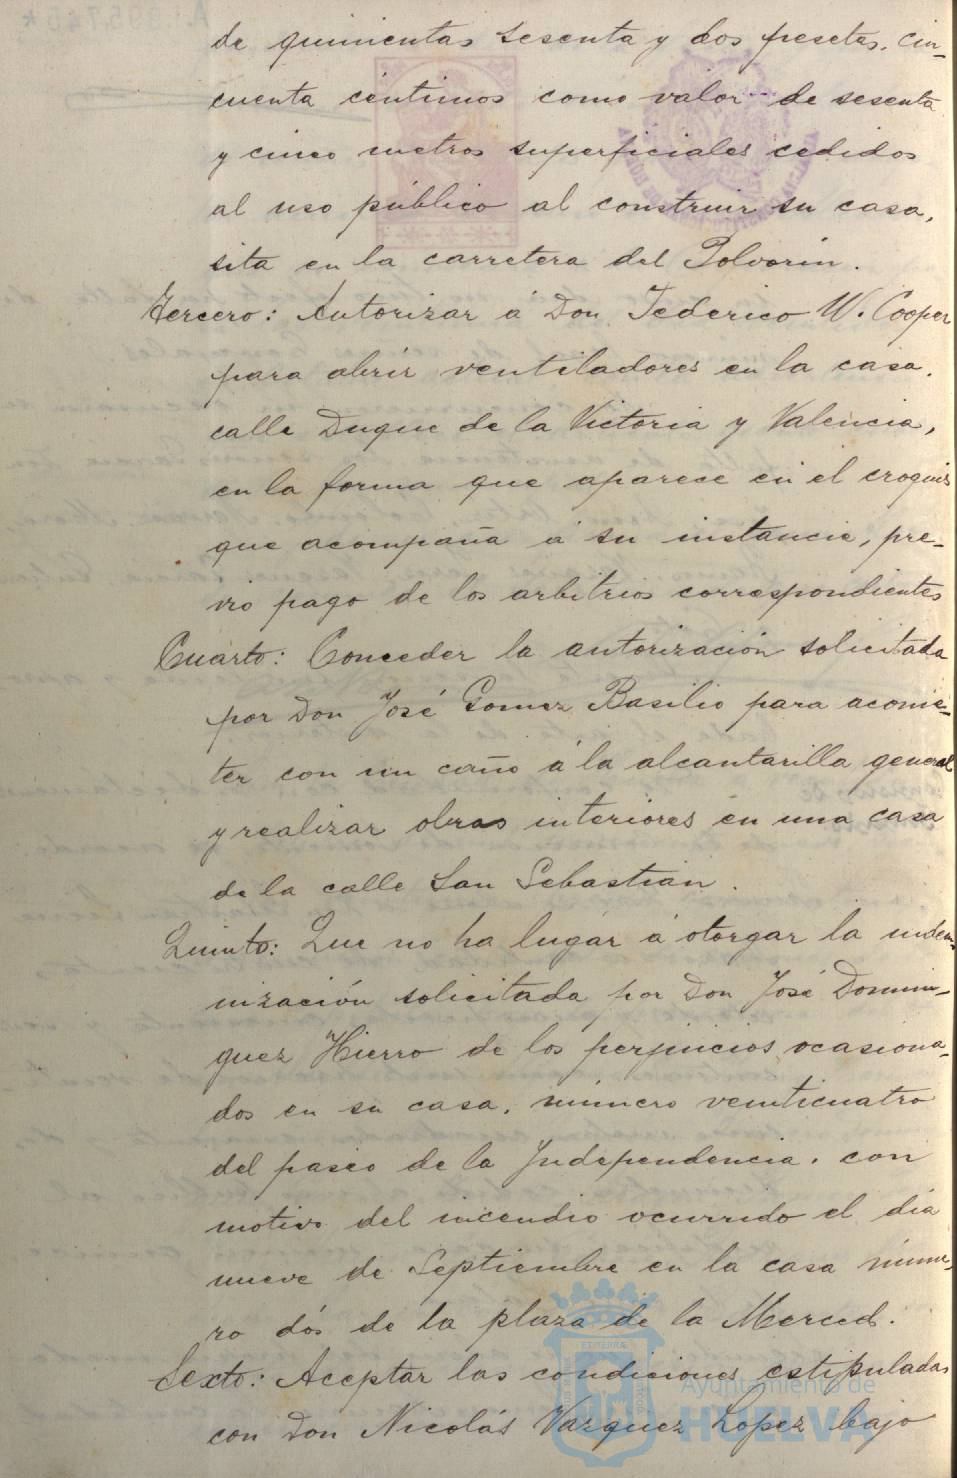 de quinientas sesenta y dos pesetas, cin-
cuenta céntimos como valor de sesenta
y cinco metros superficiales cedidos
al uso público al construir su casa,
sita en la carretera del Polvorin.
Tercero: Autorizar á Don Federico W. Cooper
para abrir ventiladores en la casa,
calle Duque de la Victoria y Valencia,
en la forma que aparece en el croquis
que acompaña á su instancia, pre-
vio pago de los arbitrios correspondientes
Cuarto: Conceder la autorización solicitada
por Don José Gomez Basilio para acome-
ter con un caño á la alcantarilla general
y realizar obras interiores en una casa
de la calle San Sebastian.
Quinto: Que no ha lugar á otorgar la indem-
nización solicitada por Don José Domin-
guez Hierro de los perjuicios ocasiona-
dos en su casa, número veinticuatro
del paseo de la Independencia, con
motivo del incendio ocurrido el día
nueve de Septiembre en la casa núme-
ro dós de la plaza de la Merced.
Sexto: Aceptar las condiciones estipuladas
con Don Nicolás Vazquez Lopez bajo
Ayuntamiento de
HUELVA